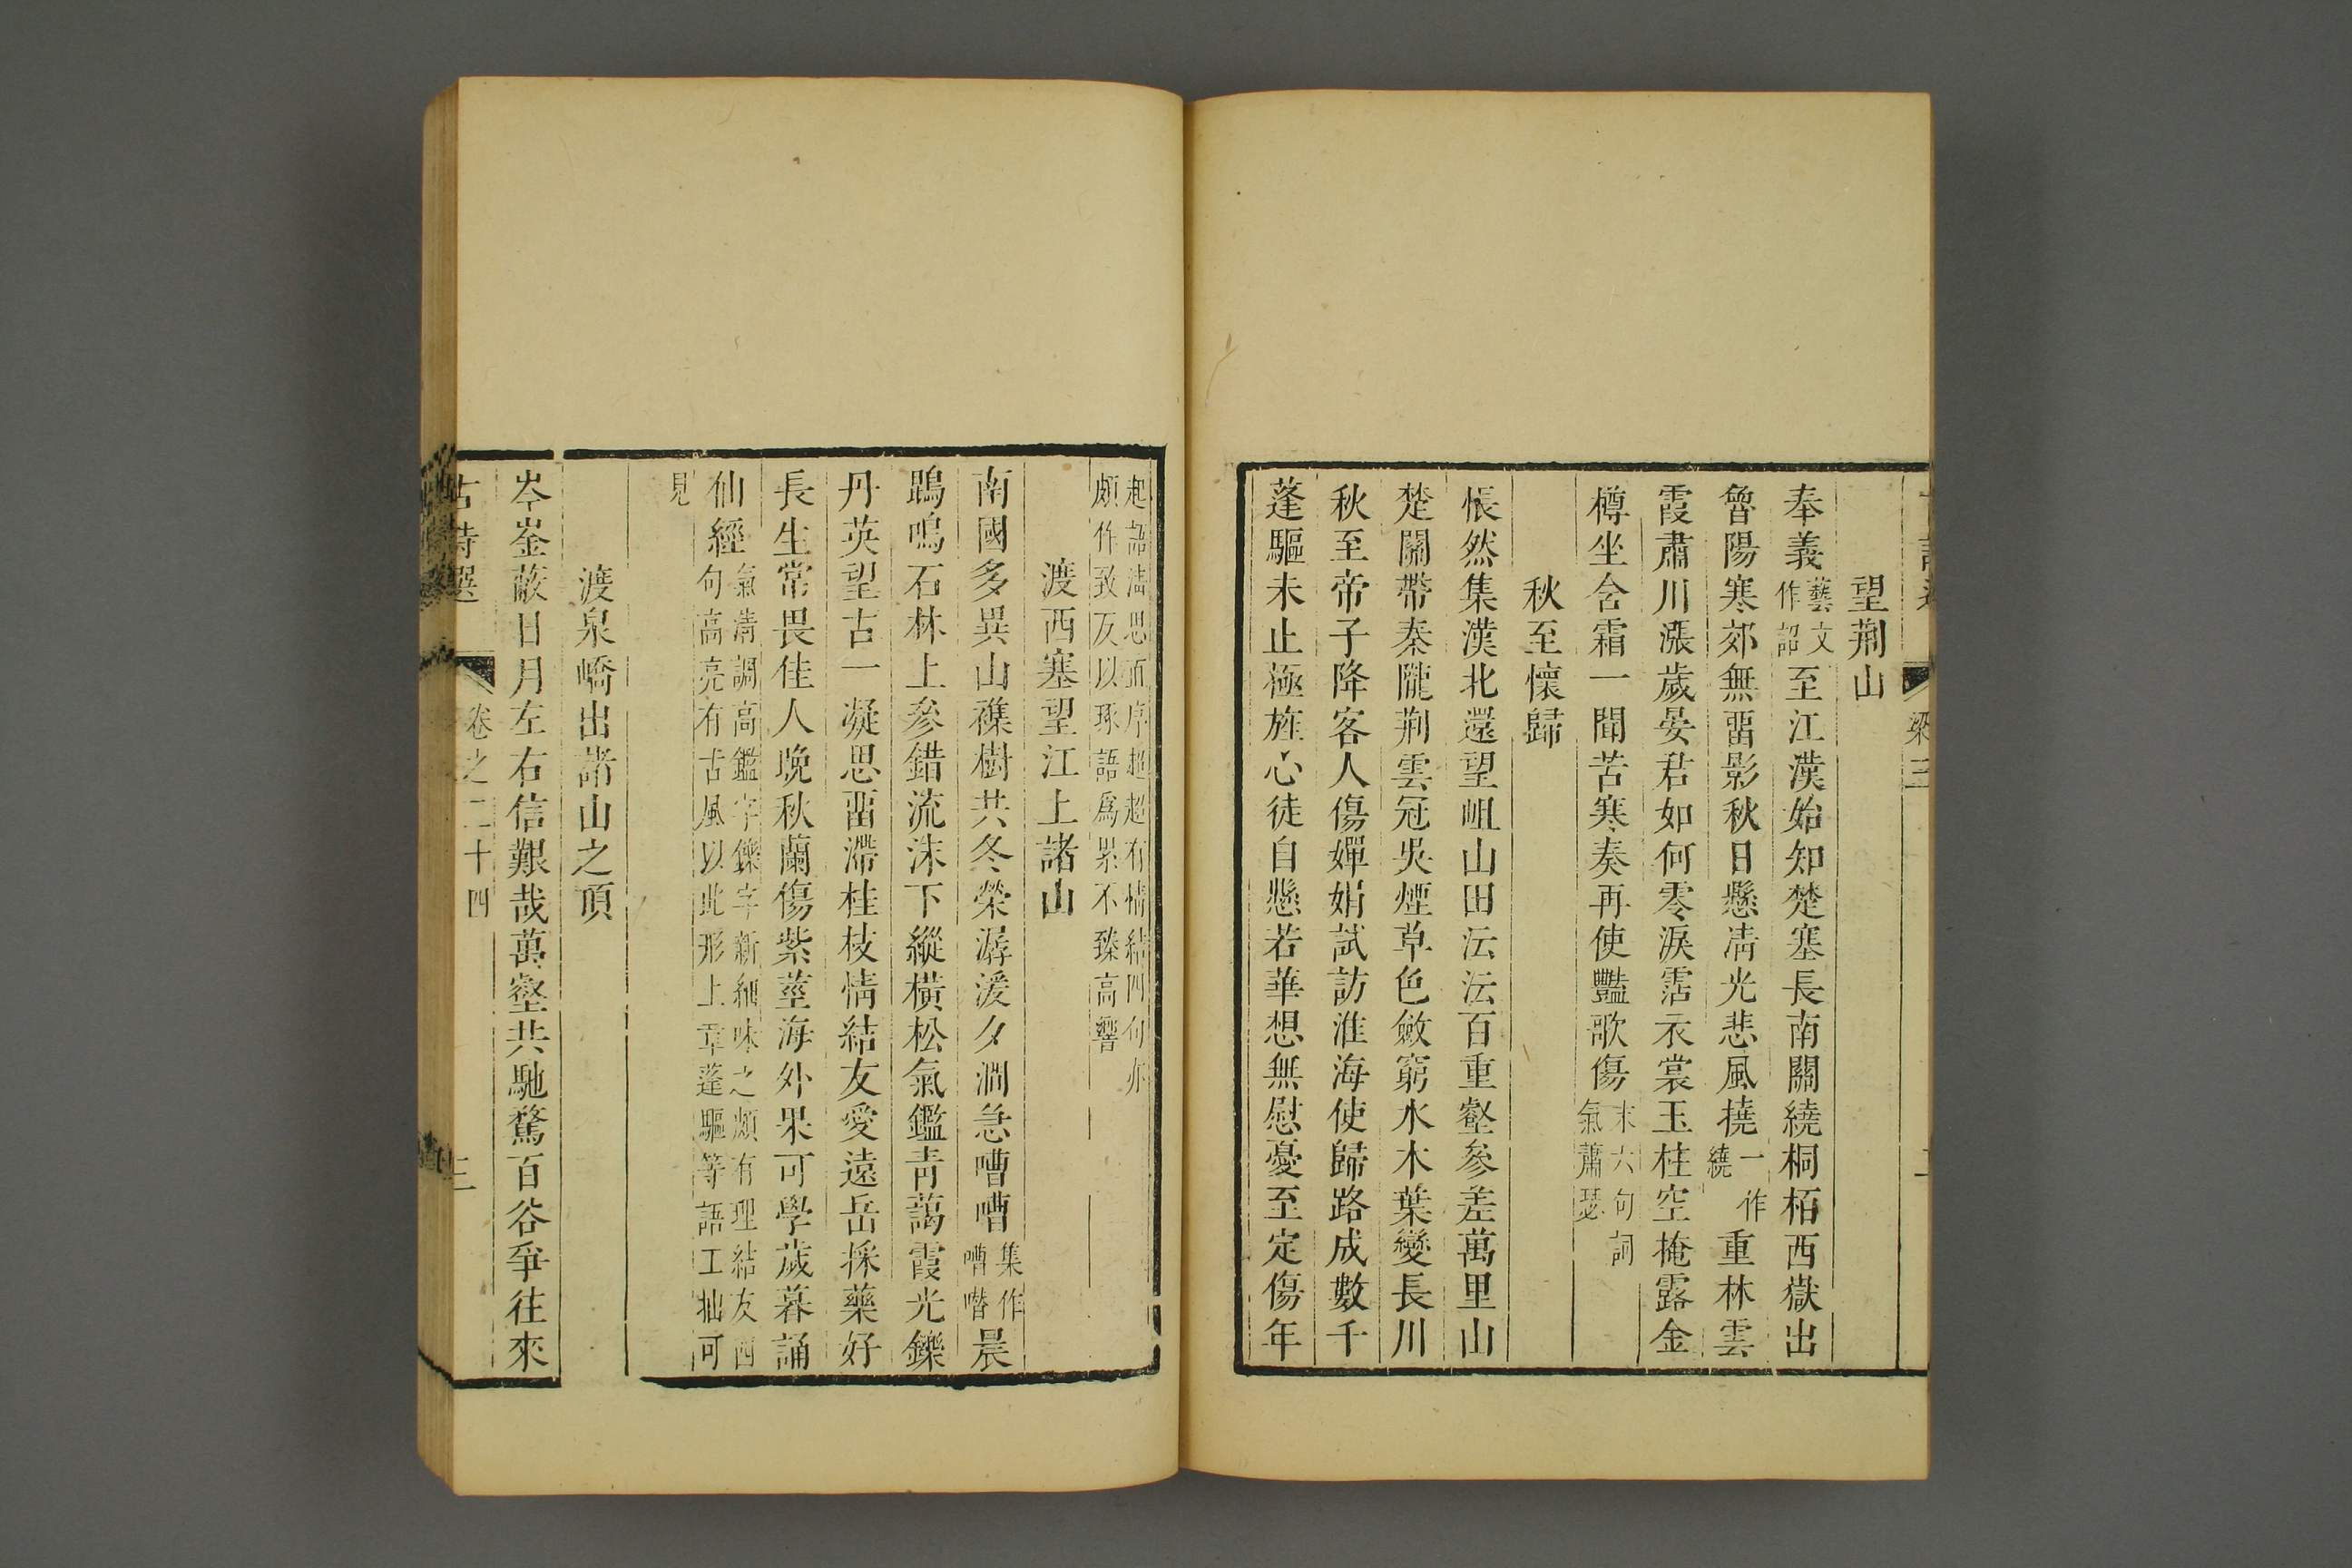 梁三
望荆山
奉義藝文作詔至江漢始知楚塞長南關繞桐栢西嶽出
魯陽寒郊無畱影秋日懸凊光悲風橈一作繞重林雲
霞肅川漲歲晏君如何零淚霑衣裳玉柱空掩露金
樽坐含霜一聞苦寒奏再使豔歌傷末六句詞氣蕭瑟
秋至懷歸
悵然集漢北還望岨山田沄沄百重壑參差萬里山
楚關帶秦隴荆雲冠吳煙草色斂窮水木葉變長川
秋至帝子降客人傷嬋娟試訪淮海使歸路成數千
蓬驅未止極旌心徒自懸若華想無慰憂至定傷年
起語清思直序超超有情結四句亦
頗作致反以琢語爲累不臻高響
渡西塞望江上諸山
南國多異山襍樹共冬榮潺湲夕澗急嘈嘈集作嘈嘈晨
鵾鳴石林上參錯流沫下縱橫松氣鑑靑藹霞光鑠
丹英望古一凝思畱滯桂枝情結友愛遠岳採藥好
長生常畏佳人晚秋蘭傷紫莖海外果可學歲暮誦
仙經氣清調高鑑字鑠字新細味之頗有理結友四句高亮有古風以此形上章蓬驅等語工拙可
見
渡泉嶠出諸山之頂
岑崟蔽日月左右信艱哉萬壑共馳騖百谷爭往來
古詩選 卷之二十四 三